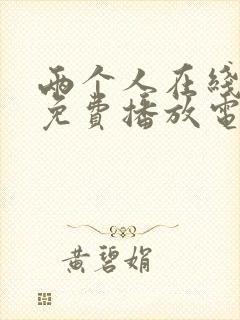 两个人在线
免费播放电
黄碧娟